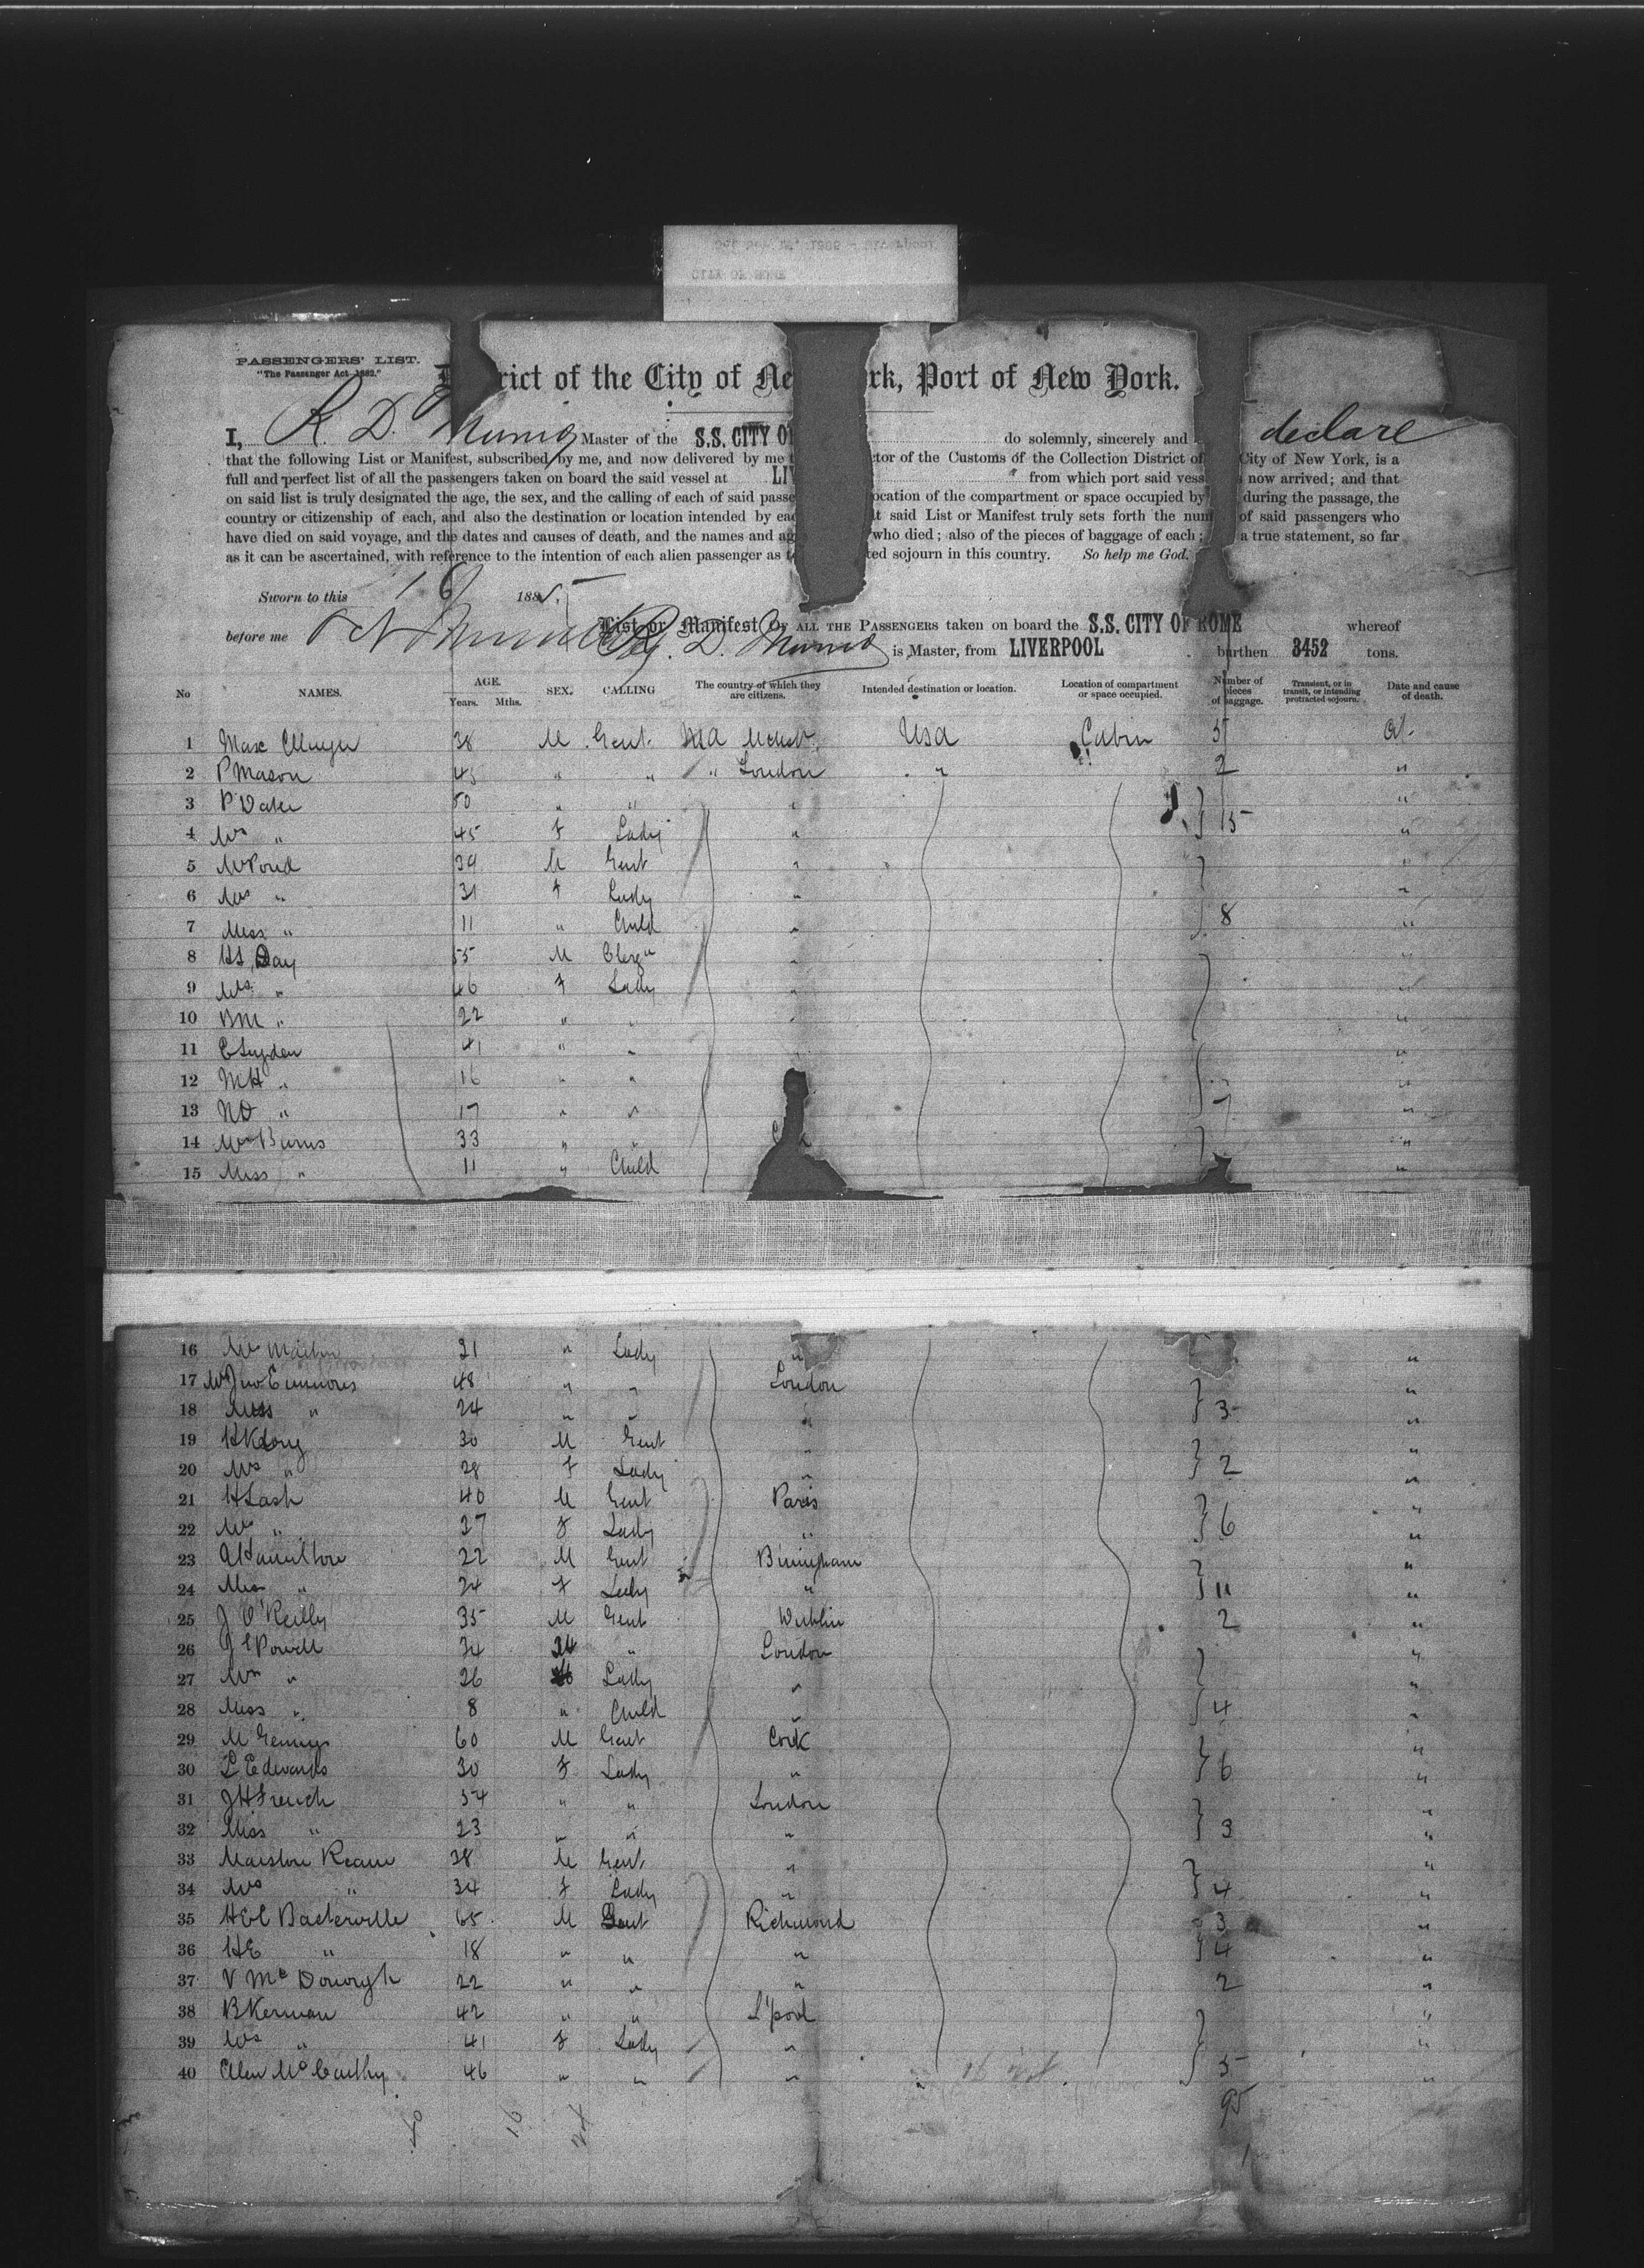 CITY OF ROME
PASSENGERS' LIST.
"The Passenger Act 1882."
rict of the City of Ne rk, Port of New York.
I, R. D. Munro Master of the S.S. CITY O do solemnly, sincerely and declare
that the following List or Manifest, subscribed by me, and now delivered by me t ctor of the Customs of the Collection District of City of New York, is a
full and perfect list of all the passengers taken on board the said vessel at LIV from which port said vess now arrived; and that
on said list is truly designated the age, the sex, and the calling of each of said passe ocation of the compartment or space occupied by during the passage, the
country or citizenship of each, and also the destination or location intended by eac t said List or Manifest truly sets forth the num of said passengers who
have died on said voyage, and the dates and causes of death, and the names and ag who died; also of the pieces of baggage of each; a true statement, so far
as it can be ascertained, with reference to the intention of each alien passenger as t ted sojourn in this country. So help me God.
Sworn to this 16 1885
before me
List or Manifest OF ALL THE PASSENGERS taken on board the S.S. CITY OF ROME whereof
R. D. Munro is Master, from LIVERPOOL burthen 3452 tons.
No NAMES. AGE. Years. Mths. SEX. CALLING The country of which they are citizens. Intended destination or location. Location of compartment or space occupied. Number of pieces of baggage. Transient, or in transit, or intending protracted sojourn. Date and cause of death.
1 Max 38 M Gent. USA Cabin 5
2 P Mason 45 " " " London " 2 "
3 P 50 " " " "
4 Mrs " 45 F Lady " 15 "
5 Mr Pond 39 M Gent " "
6 Mrs " 31 F Lady " "
7 Miss " 11 " Child " 8 "
8 HS Day 55 M Clergn " "
9 Mrs " 46 F Lady " "
10 BM " 22 " " " "
11 E Sugden 41 " " " "
12 MH " 16 " " "
13 ND " 17 " " 7 "
14 Mrs Burns 33 " " "
15 Miss " 11 " Child "
16 Mrs Martin 21 " Lady " "
17 Mrs Jno Emmons 48 " " London "
18 Miss " 24 " " " 3 "
19 HK Long 30 M Gent " "
20 Mrs " 28 F Lady " 2 "
21 H Lash 40 M Gent Paris "
22 Mrs " 27 F Lady " 6 "
23 A Hamilton 22 M Gent Birmingham "
24 Miss " 24 F Lady " 11 "
25 J O'Reilly 35 M Gent Dublin 2 "
26 J E Powell 34 M " London "
27 Mrs " 26 Lady " "
28 Miss " 8 " Child " 4 "
29 M 60 M Gent Cork "
30 L Edwards 30 F Lady " 6 "
31 JH French 54 " " London "
32 Miss " 23 " " " 3 "
33 Marston Ream 38 M Gent. " "
34 Mrs " 34 F Lady " 4 "
35 HEC Baskerville 65 M Gent Richmond 3 "
36 HE " 18 " " " 4 "
37 V McDonogh 22 " " " 2 "
38 B Kernan 42 " " L'pool "
39 Mrs " 41 F Lady " "
40 Ellen McCarthy 46 " " " 5 "
40 16 24 95